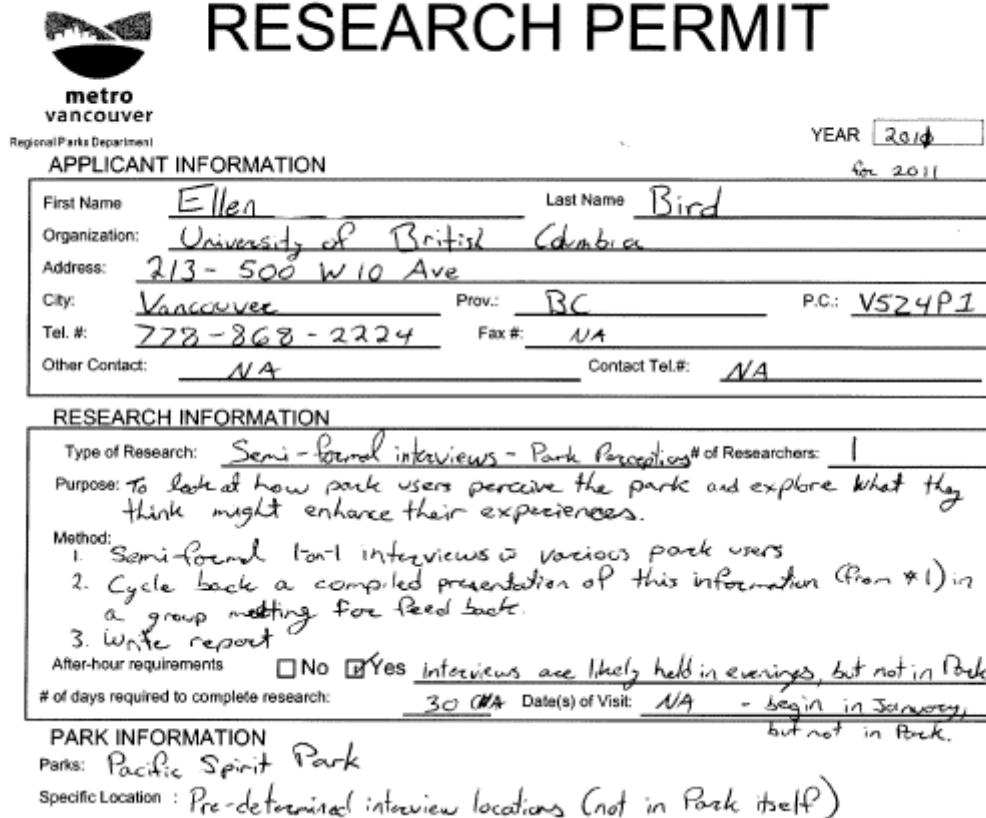 RESEARCH PERMIT
metro
vancouver
Regional Parks Department
YEAR 2010
for 2011
APPLICANT INFORMATION
First Name Ellen Last Name Bird
Organization: University of British Columbia
Address: 213 - 500 W 10 Ave
City: Vancouver Prov.: BC P.C.: V5Z4P1
Tel. #: 778-868-2224 Fax #: NA
Other Contact: NA Contact Tel.#: NA
RESEARCH INFORMATION
Type of Research: Semi-formal interviews - Park Perceptions # of Researchers: 1
Purpose: To look at how park users perceive the park and explore what they
think might enhance their experiences.
Method:
1. Semi-formal 1-on-1 interviews various park users
2. Cycle back a compiled presentation of this information (from #1) in
a group meeting for feed back.
3. Write report
After-hour requirements No Yes interviews are likely held in evenings, but not in Park
# of days required to complete research: 30 Date(s) of Visit: NA - begin in January,
but not in Park.
PARK INFORMATION
Parks: Pacific Spirit Park
Specific Location : Pre-determined interview locations (not in Park itself)